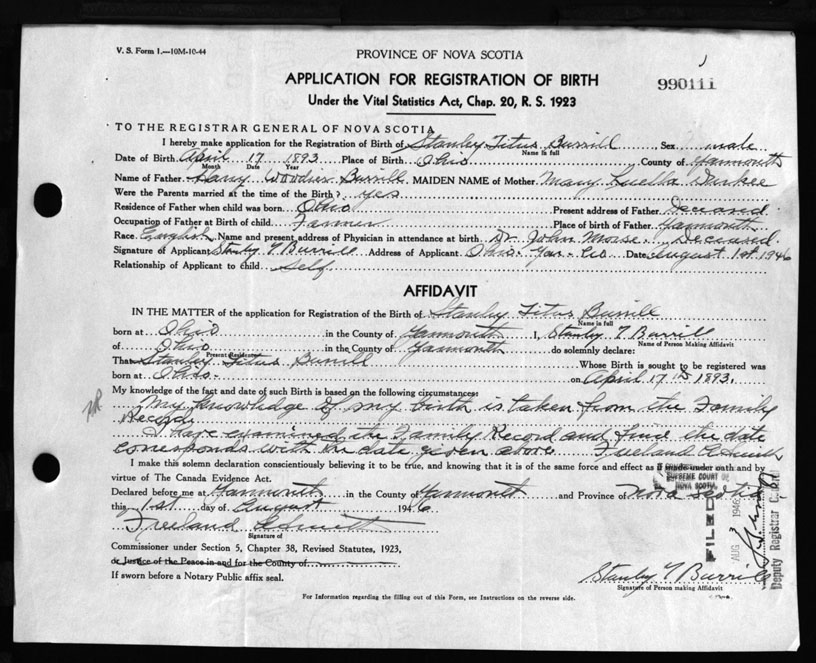 V. S. Form 1.—10M-10-44
PROVINCE OF NOVA SCOTIA
APPLICATION FOR REGISTRATION OF BIRTH
990111
Under the Vital Statistics Act, Chap. 20, R. S. 1923
TO THE REGISTRAR GENERAL OF NOVA SCOTIA
I hereby make application for the Registration of Birth of Stanley Titus Burrill Sex male
Name in full
Date of Birth April 17 1893 Place of Birth Ohio County of Yarmouth
Month Date Year
Name of Father Harry Woodin Burrill MAIDEN NAME of Mother Mary Luella Durkee
Were the Parents married at the time of the Birth? yes
Residence of Father when child was born Ohio Present address of Father Deceased
Occupation of Father at Birth of child Farmer Place of birth of Father Yarmouth
Race English Name and present address of Physician in attendance at birth Dr John Morse. Deceased.
Signature of Applicant Stanley T Burrill Address of Applicant Ohio Yar. Co Date August 1st 1946
Relationship of Applicant to child Self
AFFIDAVIT
IN THE MATTER of the application for Registration of the Birth of Stanley Titus Burrill
Name in full
born at Ohio in the County of Yarmouth I, Stanley T Burrill
Name of Person Making Affidavit
of Ohio in the County of Yarmouth do solemnly declare:
Present Residence
That Stanley Titus Burrill Whose Birth is sought to be registered was
born at Ohio. on April 17th 1893.
My knowledge of the fact and date of such Birth is based on the following circumstances:
My knowledge of my birth is taken from the Family
Record
I have examined the Family Record and find the date
corresponds with the date given above Freeland
I make this solemn declaration conscientiously believing it to be true, and knowing that it is of the same force and effect as if made under oath and by
virtue of The Canada Evidence Act.
SUPREME COURT OF
NOVA SCOTIA
Declared before me at Yarmouth in the County of Yarmouth and Province of Nova Scotia
this 1st day of August 1946
Freeland
Signature of
Commissioner under Section 5, Chapter 38, Revised Statutes, 1923,
or Justice of the Peace in and for the County of
If sworn before a Notary Public affix seal.
FILED
AUG 1946
Deputy Registrar General
Stanley T Burrill
Signature of Person making Affidavit
For Information regarding the filling out of this Form, see Instructions on the reverse side.